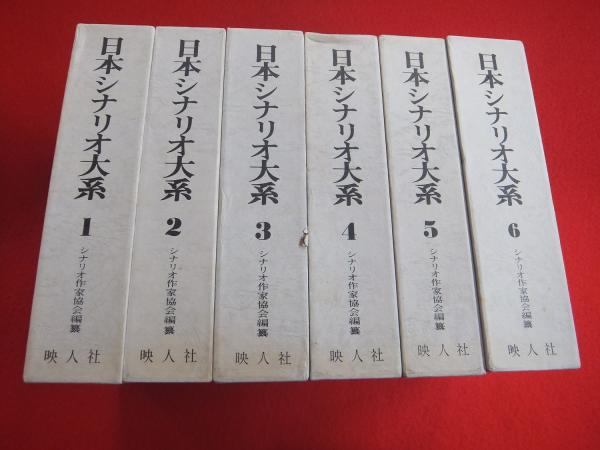 日本シナリオ大系
1
シナリオ作家協会編纂
映人社
日本シナリオ大系
2
シナリオ作家協会編纂
映人社
日本シナリオ大系
3
シナリオ作家協会編纂
映人社
日本シナリオ大系
4
シナリオ作家協会編纂
映人社
日本シナリオ大系
5
シナリオ作家協会編纂
映人社
日本シナリオ大系
6
シナリオ作家協会編纂
映人社